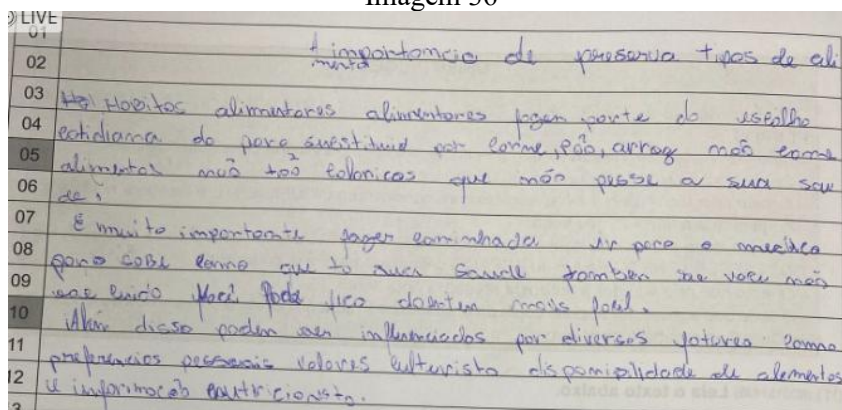 Imagem 30
LIVE
01
02 A importancia de preserva tipos de ali
menta
03 Habitos alimentares alimentares fazen parte do escolho
04 cotidiana do para sucstituid por carme, pão, arroz não come
05 alimentos não too colonicos que não pesse a sua sau
06 de.
07 É muito importante fazer caminhada ir para o
08 para sobe como que to sua saude tomben se voce não
09 Você Pode fico doenten mais facil.
10 Alem disso poden ser influenciados por diversos fatores como
11 preferencias pessoais valores culturisto disponiplidade de alementos
12 e informocob